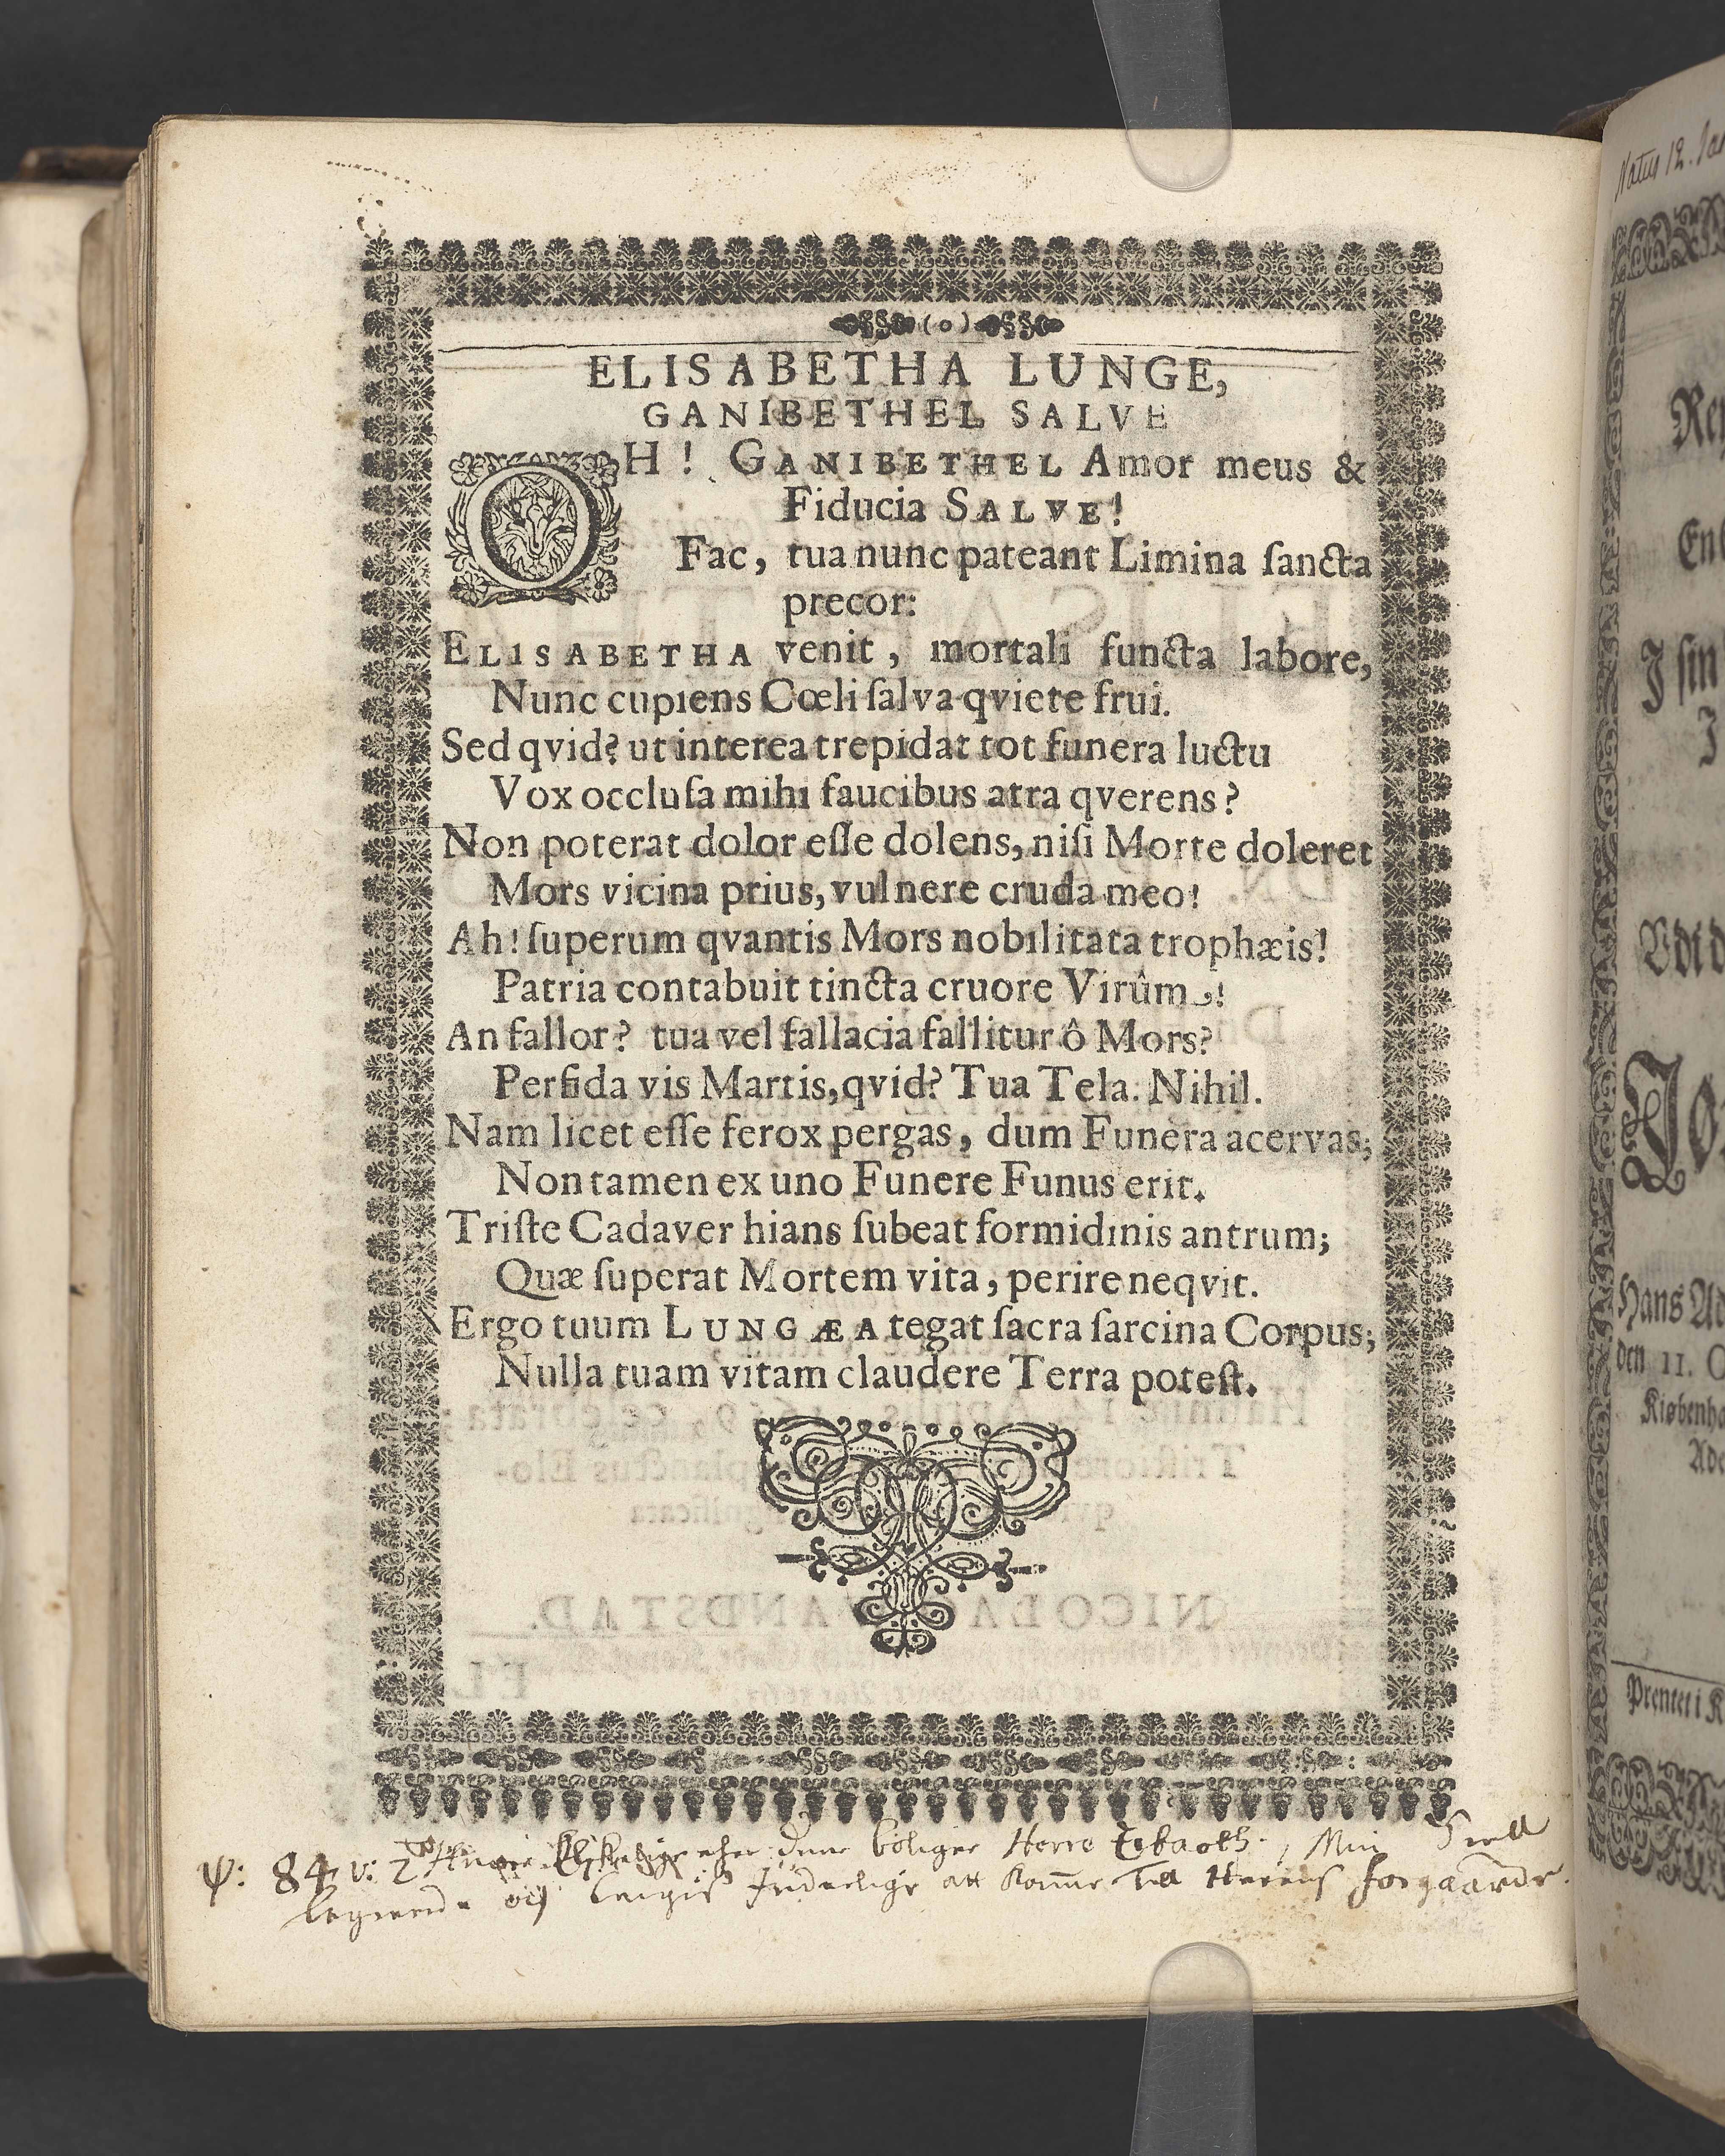 (o)
ELISABETHA LUNGE,
GANIBETHEL SALVE
OH! GANIBETHEL Amor meus &
Fiducia SALVE!
Fac, tua nunc pateant Limina ſancta
precor:
ELISABETHA venit, mortali functa labore,
Nunc cupiens Cœli ſalva qviete frui.
Sed qvid? ut interea trepidat tot funera luctu
Vox occluſa mihi faucibus atra qverens?
Non poterat dolor eſſe dolens, niſi Morte doleret
Mors vicina prius, vulnere cruda meo!
Ah! ſuperum qvantis Mors nobilitata trophæis!
Patria contabuit tincta cruore Virûm!
An fallor? tua vel fallacia fallitur ô Mors?
Perfida vis Martis, qvid? Tua Tela. Nihil.
Nam licet eſſe ferox pergas, dum Funera acervas;
Non tamen ex uno Funere Funus erit.
Triſte Cadaver hians ſubeat formidinis antrum;
Quæ ſuperat Mortem vita, perire neqvit.
Ergo tuum LUNGÆA tegat ſacra ſarcina Corpus;
Nulla tuam vitam claudere Terra poteſt.
ψ: 84. v: 2 dine boliger Herre Zebaoth, Min Siell
och att Komme till Herrens forgaarde.
Natus 12. Jan
En
J ſin
J
Vdi d
Hans
den 11. O
Kiøbenh
Prentet i K